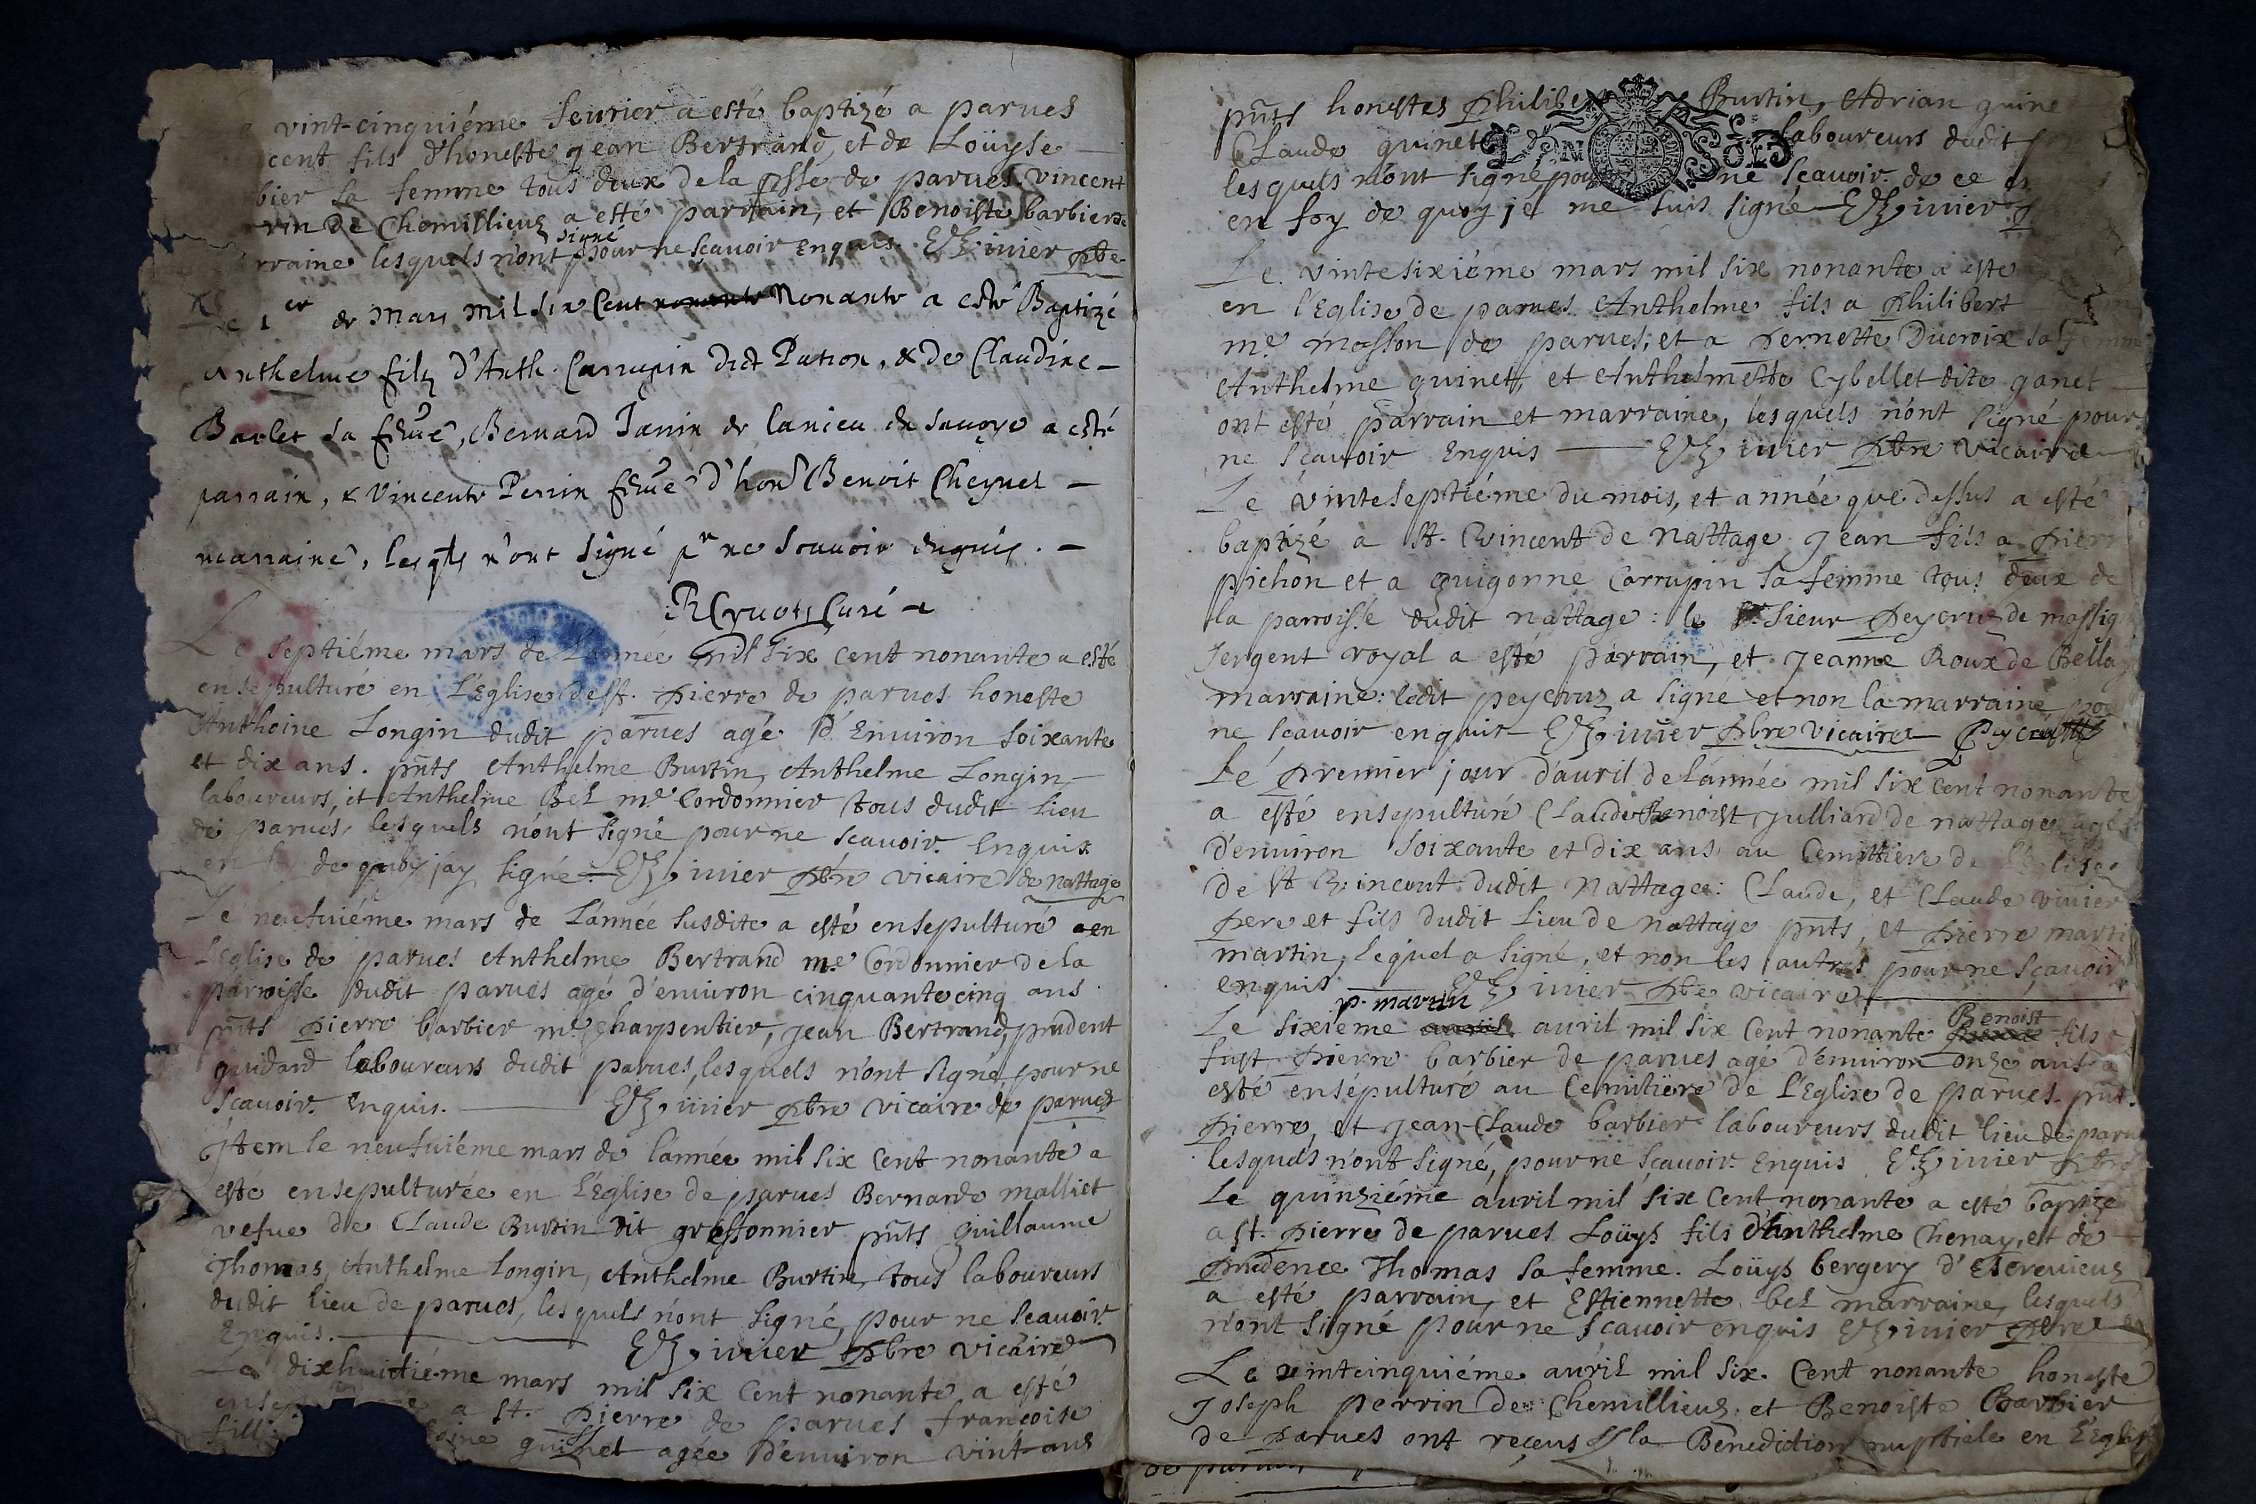 vint-cinquiéme feurier a esté baptizé a parues
cent fils d'honeste Jean Bertrand, et de Loüyse
bier sa femme tous deux de la psse de parues. vincent
rin de Chemillieuz a esté parrain, et Benoiste barbier
rraine lesquels n'ont signé pour ne scauoir enquis. Viuier pbre
Le 1er de Mars mil six Cent nonante Nonante a esté Baptizé
Anthelme filz d'Anth. Carrupin dict Pation, & de Claudine
Barlet sa feme, Bernard Janin de lanieu en Sauoye a esté
parrain, & Vincente Perrin feme d'hon. Benoit Cheynet
marraine, lesqls n'ont signé pr ne scauoir enquis.
R Cruoti Curé
Le septiéme mars de L'année mil six cent nonante a esté
ensepulturé en L'Eglise de st. pierre de parues honeste
Anthoine Longin dudit parues agé d'Enuiron soixante
et dix ans. pnts Anthelme Burtin, Anthelme Longin,
laboureurs, et Anthelme Bel me Cordonnier tous dudit Lieu
de parues, lesquels n'ont signé pour ne scauoir Enquis
en foy de quoy jay signé Viuier pbre vicaire de nattage
Le neufuiéme mars de L'année susdite a esté ensepulturé en
L'Eglise de parues Anthelme Bertrand me Cordonnier de la
parroisse dudit parues agé d'enuiron cinquante cinq ans
pnts pierre barbier me charpentier, Jean Bertrand, prudent
guidard laboureurs dudit parues, lesquels n'ont signé pour ne
scauoir Enquis. Viuier pbre vicaire de parues
Jtem le neufuiéme mars de l'année mil six Cent nonante a
esté ensepulturée en L'Eglise de parues Bernarde malliet
vefue de Claude Burtin dit gressonnier pnts Guillaume
Thomas, Anthelme Longin, Anthelme Burtin, tous laboureurs
dudit lieu de parues, lesquels n'ont signé, pour ne scauoir
Enquis. Viuier pbre vicaire
Le dixhuitiéme mars mil six Cent nonante a esté
a st. pierre de parues françoise
quinet agée d'enuiron vint ans
pnts honestes Philibe Burtin, Adrian quine
Claude quinet laboureurs dudit
lesquels n'ont signé pour ne scauoir de ce
en foy de quoy je me suis signé Viuier
Le vintesixiéme mars mil six nonante a esté
en l'Eglise de parues Anthelme fils a Philibert
me masson de parues, et a pernette Ducroix sa femme
Anthelme quinet, et Anthelmette Cybellet dite ganet
ont esté parrain et marraine, lesquels n'ont signé pour
ne scauoir Enquis Viuier pbre vicaire
Le vinteseptiéme du mois, et année que dessus a esté
baptizé a St. Vincent de Nattage Jean fils a pierr
pichon et a guigonne Carrupin sa femme tous deux de
la parroisse dudit nattage: le Sieur peycruz de massig
sergent royal a esté parrain, et Jeanne Roux de Bella
marraine: ledit peycruz a signé et non la marraine pou
ne scauoir enquis Viuier pbre vicaire
Le premier jour d'auril de L'année mil six Cent nonante
a esté ensepulturé Claude Benoist Julliard de nattage agé
d'enuiron soixante et dix ans au Cemittiere de l'Eglise
de st Vincent dudit Nattage: Claude, et Claude viuier
pere et fils dudit Lieu de Nattage pnts, et pierre marti
martin, lequel a signé, et non les autres pour ne scauoir
enquis. p. martin Viuier pbre vicaire
Le sixiéme auril mil six Cent nonante Benoist fils
fust pierre barbier de parues agé d'enuiron onze ans a
esté ensepulturé au Cemittiere de l'Eglise de parues. pnt.
pierre, et Jean-Claude barbier laboureurs dudit lieu de paru
lesquels n'ont signé, pour ne scauoir Enquis Viuier pbre
Le quinziéme auril mil six Cent nonante a esté baptizé
a st. pierre de parues Loüys fils d'Anthelme Chenay, et de
prudence Thomas sa femme. Loüys bergery d'Escreuieuz
a esté parrain, et Estiennette bel marraine, lesquels
n'ont signé pour ne scauoir enquis Viuier pbre
Le vintcinquiéme auril mil six. Cent nonante honeste
Joseph perrin de Chemillieuz et Benoiste Barbier
de parues ont reçeus la Benediction nuptiale en L'Eglis